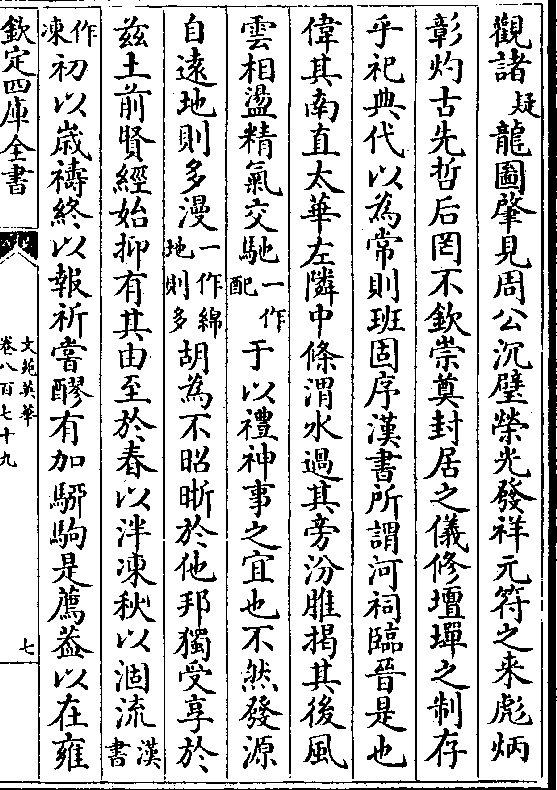 觀諸疑龍圖肇見周公沉璧榮光發祥元符之来彪炳
彰灼古先哲后罔不欽崇奠封居之儀修壇墠之制存
乎祀典代以為常則班固序漢書所謂河祠臨晉是也
偉其南直太華左隣中條渭水過其旁汾脽揭其後風
雲相盪精氣交馳一作配于以禮神事之宜也不然發源
自遠地則多漫一作綿地則多胡為不昭晣於他邦獨受享於
兹土前賢經始抑有其由至於春以泮凍秋以涸流漢書
作凍初以嵗禱終以報祈嘗醪有加騂駒是薦葢以在雍
欽定四庫全書
文苑英華
卷八百七十九
七